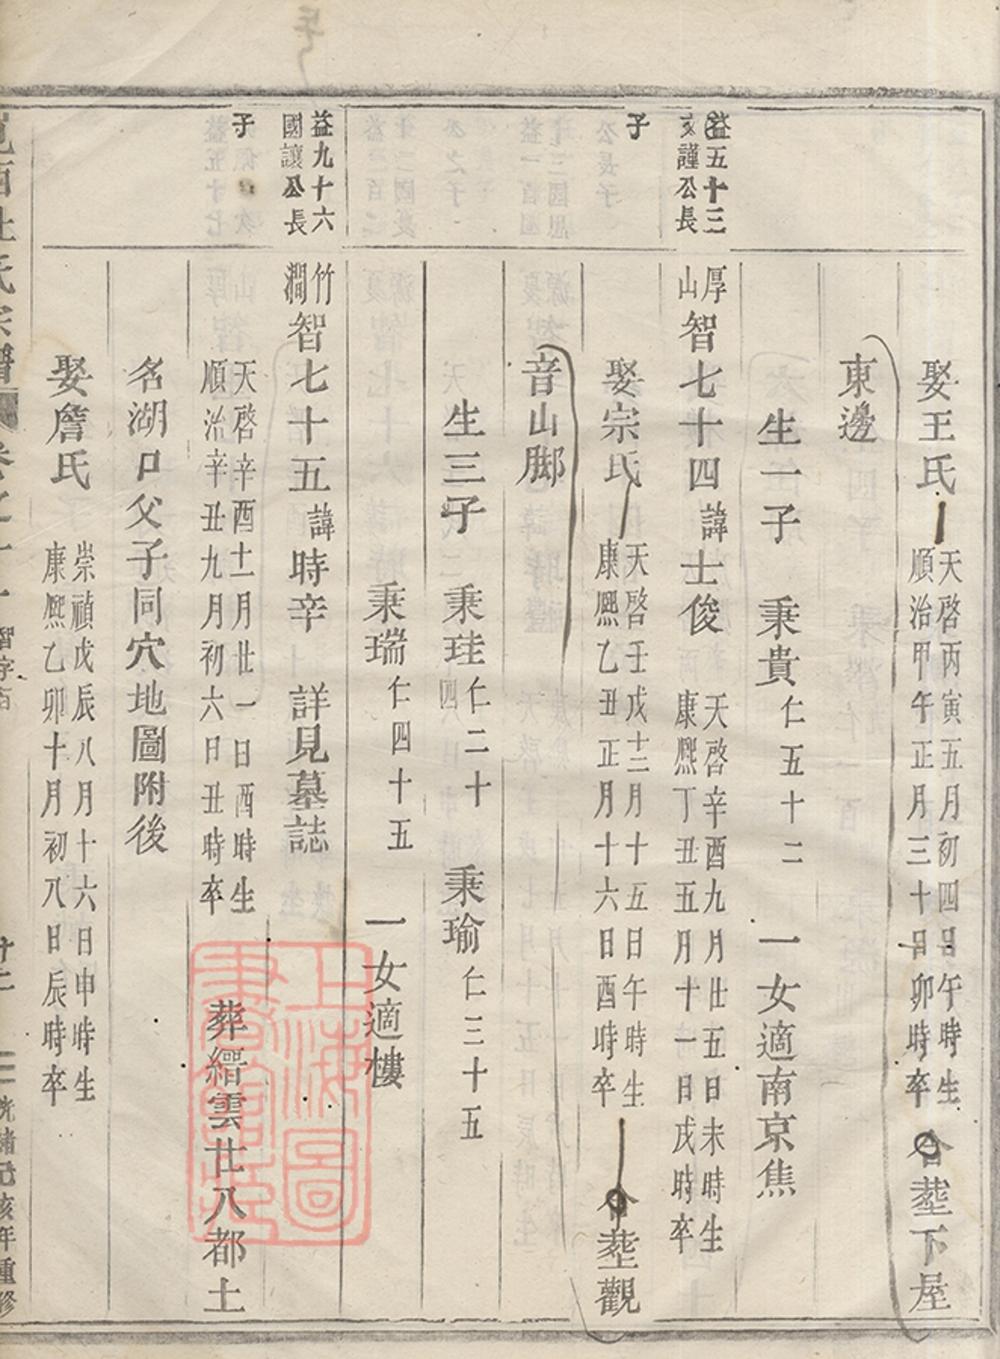 娶王氏 天啓丙寅五月初四日午時生 順治甲午正月三十日卯時卒 合塟下屋
東邊
生一子 秉貴 仁五十二 一女適南京焦
益五十三
文謹公長
子
厚山 智七十四 諱士俊 天啓辛酉九月廿五日未時生 康熈丁丑五月十一日戌時卒
娶宗氏 天啓壬戌十二月十五日午時生 康熈乙丑正月十六日酉時卒 合塟觀
音山脚
生三子 秉珪 仁二十四 秉瑜 仁三十五
秉瑞 仁四十五 一女適樓
益九十六
國讓公長
子
竹澗 智七十五 諱時辛 詳見墓誌
天啓辛酉十一月廿一日酉時生 順治辛丑九月初六日丑時卒 葬縉雲廿八都土
名湖口父子同穴地圖附後
娶詹氏 崇禎戊辰八月十六日申時生 康熈乙卯十月初八日辰時卒
杜氏宗譜 卷之十一 智字 光緒己亥年重修
上海圖書館藏